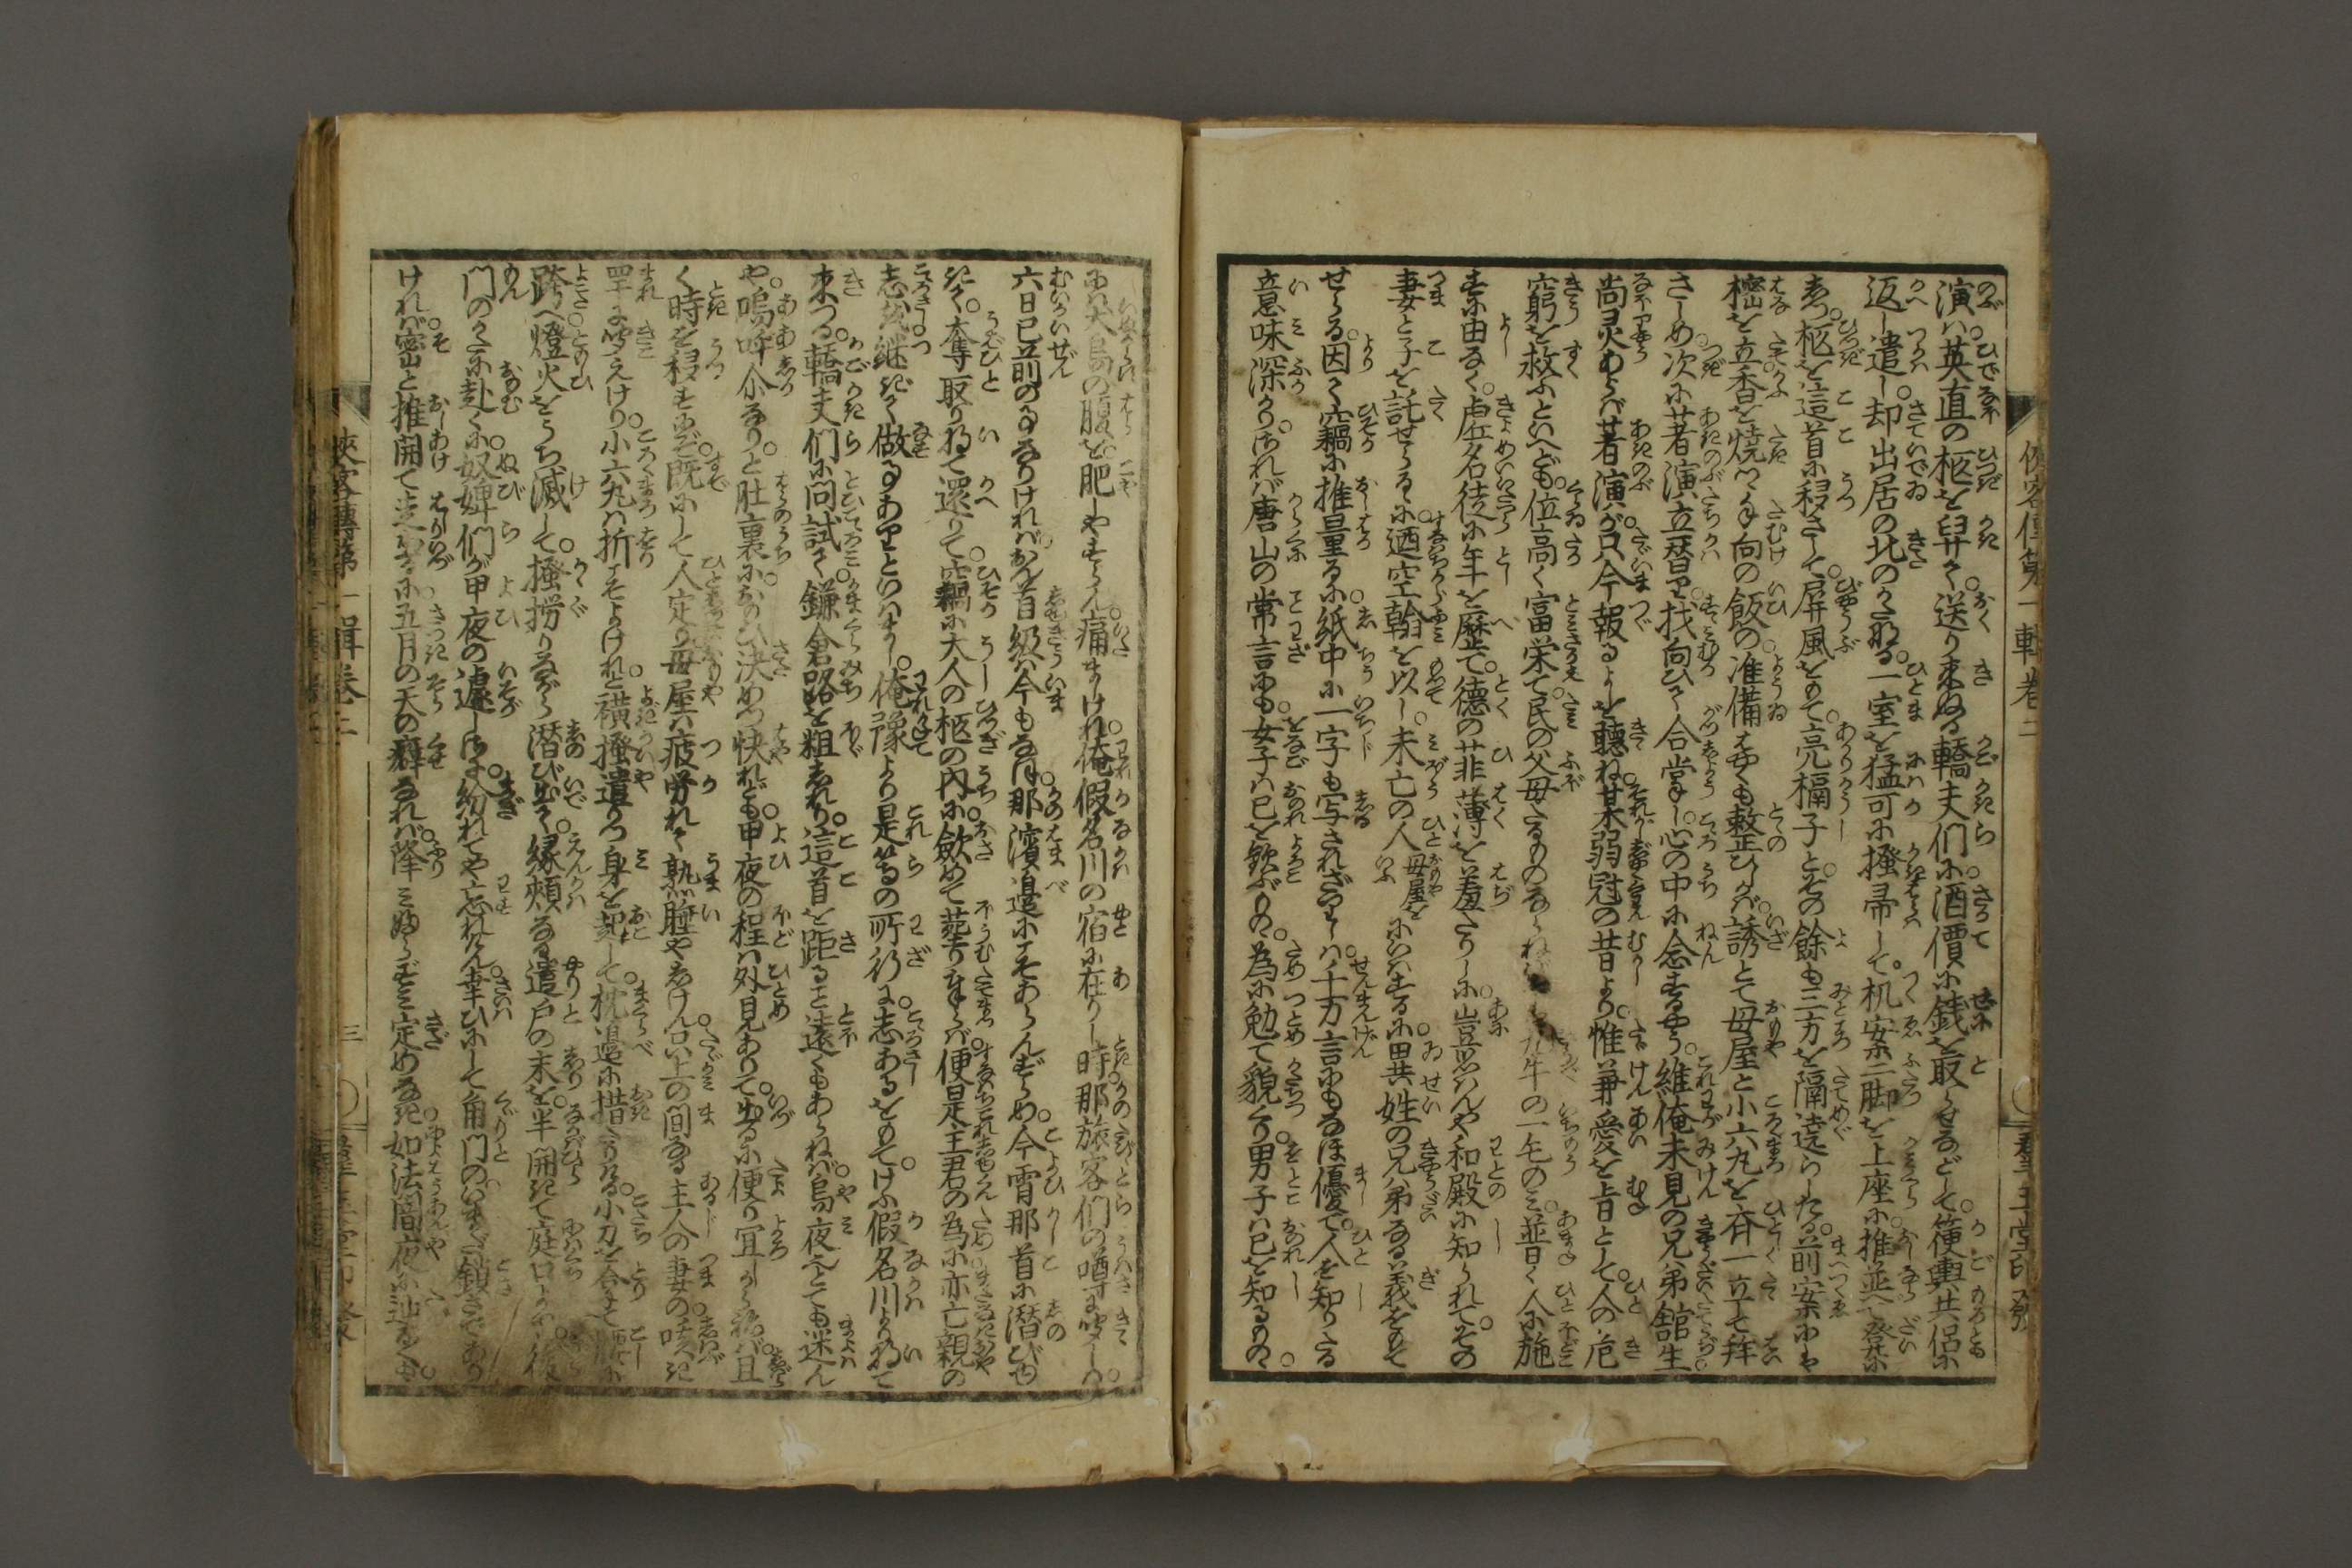 演ハ。英直の柩を舁て。送り来ぬる轎夫們に。酒價に銭を取らせなどして。箯輿共侶に
返し遣し。却出居の北のかたなる。一室を猛可に掻帚して。机案二脚を上座に推並て。登に
柩を這首に移さして。屏風をもて。亮槅子と。その餘も三方を隔遶らしたる。前案にや
樒を立香を焼く。向の飯の准備さへも整ひしかば。誘とて母屋と小六九を。斉一立して拝
さしめ。次に著演立替りて。找向ひて合掌し。心の中に念ずるやう。維俺未見の兄弟。舘生
尚霊あらば。著演が。只今報るよしを聴ね。某弱冠の昔より。惟兼愛を旨として。人の危
窮を救ふといへども。位高く富栄て。民の父母たるものならねば。九牛の一毛のミ。普く人に施
すに由なく。虚名徒に年を歴て。徳の菲薄を羞たりしに。豈思んや和殿に知られて。その
妻と子を託せらるゝに。迺空翰を以し。未亡の人母屋をいふにいはするに。異姓の兄弟なる義をもて
せらる。因て竊に推量るに。紙中に一字も写されざりしハ。千万言にもなほ優て。人を知りたる
意味深かり。されば唐山の常言にも。女子ハ己を歓ぶもの。為に勉て貌つくり。男子ハ己を知るもの。
に。犬鳥の腹を。肥しやすらん。痛ましけれ。俺假名川の宿に在りし時。那旅客們の噂に聞しハ。
六日已前の事なりければ。おん首級ハ今もなほ。那濱邊にこそあらんずらめ。今宵那首に潜び
ゆきて。奪取り将て還りて。竊に大人の柩の内に。斂めて葬り奉らば。便是主君の為に。亦亡親の
志を継ぎて做す事ありといはまし。俺豫より是等の所行に。志あるをもて。けふ假名川より将て
来つる。轎夫們に問試て。鎌倉路を粗知れり。這首を距ること遠くもあらねば。烏夜とても迷ん
や。嗚呼尓なり。と肚裏に。おもひ決めつ快れども。甲夜の程ハ外見ありて。出るに便り宜しからねば。且
く時を移すにぞ。既にして人定り。母屋ハ疲労れて熟睡やしけん。上の間なる主人の妻の。咳き
罕に聞えけり。小六九ハ折こそよけれと。横掻遣りつ身を起して。枕邊に措たりける。小刀を合せて腰に
跨へ。燈火をうち滅して。掻撈りながら潜び出て。縁頬なる遣戸の末を。半開きて庭口より。後
門のかたに赴くに。奴婢們が甲夜の遽しさに。紛れてや忘れけん。幸ひにして角門の。いまだ鎖さでありけ
ければ。密と推開て走出るに。五月の天の癖なれハ。降ミ降らずミ定めなき。如法闇夜に辿るとも。
侠客傳第一輯巻二
群玉堂印發
侠客傳第一輯巻二
三
群玉堂印發